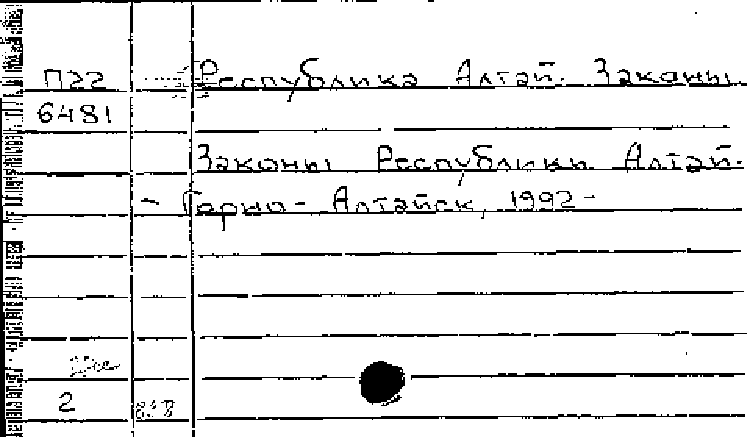 П22 Республика Алтай. Законы.
6481
Законы Республики Алтай.
- Горно-Алтайск, 1992-
2